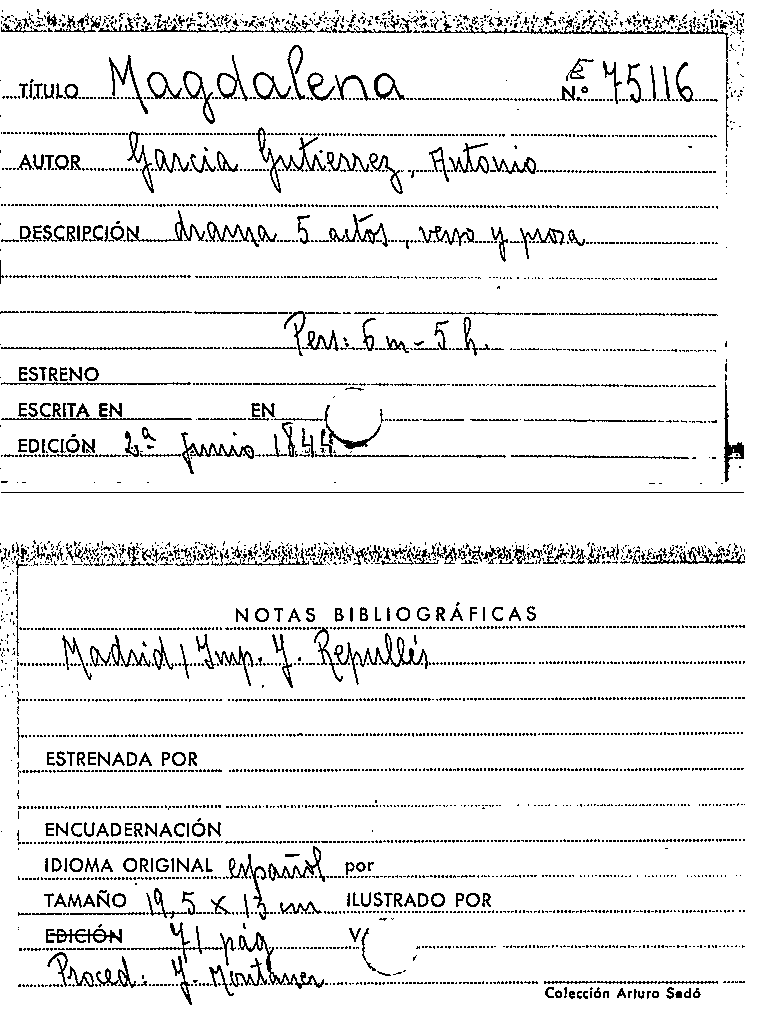 TÍTULO Magdalena E N.º 75116
AUTOR García Gutierrez, Antonio
DESCRIPCIÓN drama 5 actos, verso y prosa
Pers: 6 m - 5 h.
ESTRENO
ESCRITA EN EN
EDICIÓN 2.ª Junio 1844
NOTAS BIBLIOGRÁFICAS
Madrid / Imp. Y. Repullés
ESTRENADA POR
ENCUADERNACIÓN
IDIOMA ORIGINAL español por
TAMAÑO 19,5 x 13 cm ILUSTRADO POR
EDICIÓN 71 pág V
Proced: Y. Montaner
Colección Arturo Sedó